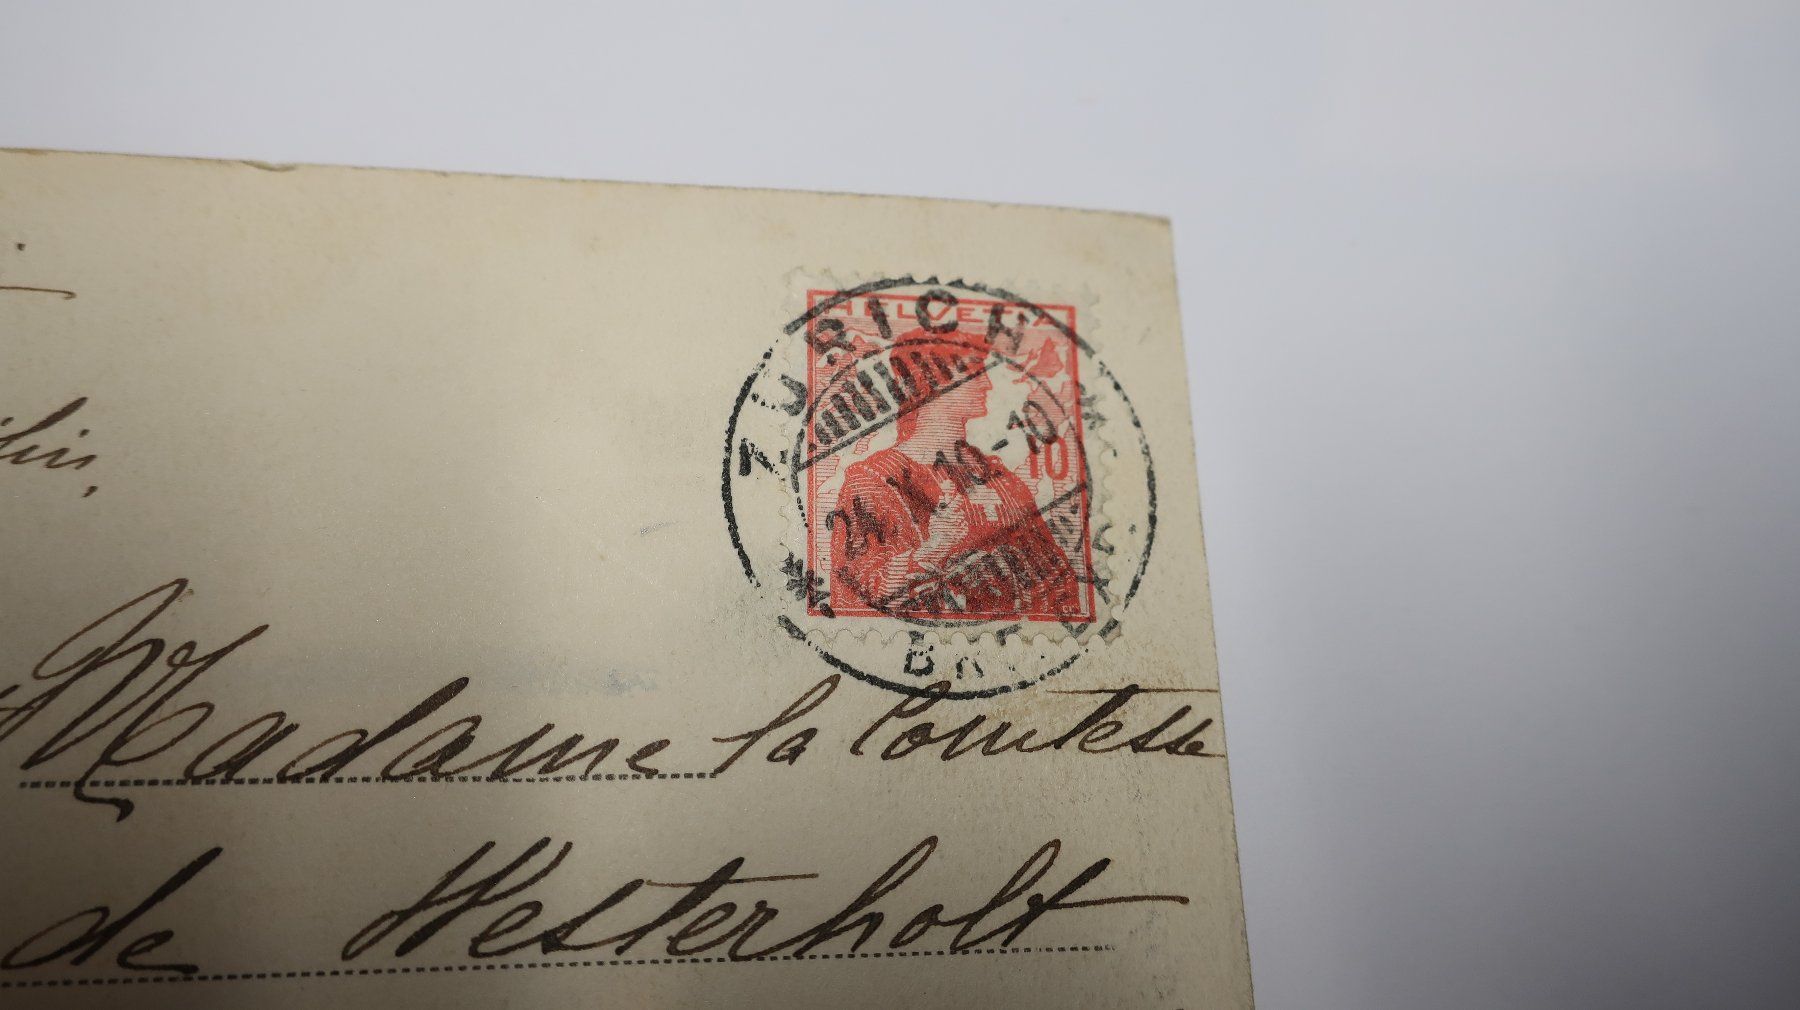 HELVETIA
ZÜRICH
10
24. X. 10.-10
Madame la Comtesse
de Westerholt